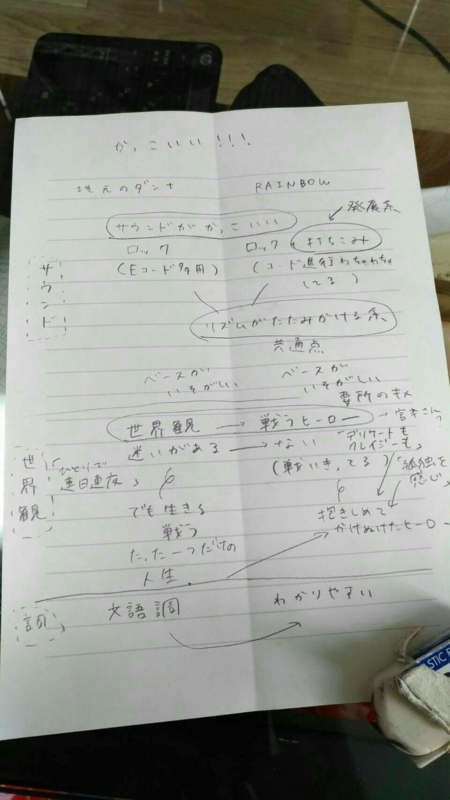 かっこいい!!!
地元のダンナ RAINBOW
発展系
サウンドがかっこいい
ロック ロック + 打ちこみ
(Eコード多用) (コード進行わちゃわちゃ
してる)
サウンド
リズムがたたみかける系
共通点
ベースが ベースが
いそがしい いそがしい
要所のキメ
世界観 → 戦うヒーロー → 宮本さん?
迷いがある → ない 「デリケートも
クレイジーも」
世界観
「ひとりで
連日連夜」
(戦いきってる)
「孤独を
感じ」
でも生きる
戦う
たった一つだけの
人生.
抱きしめて
かけぬけたヒーロー
詞
文語調 わかりやすい
STIC E